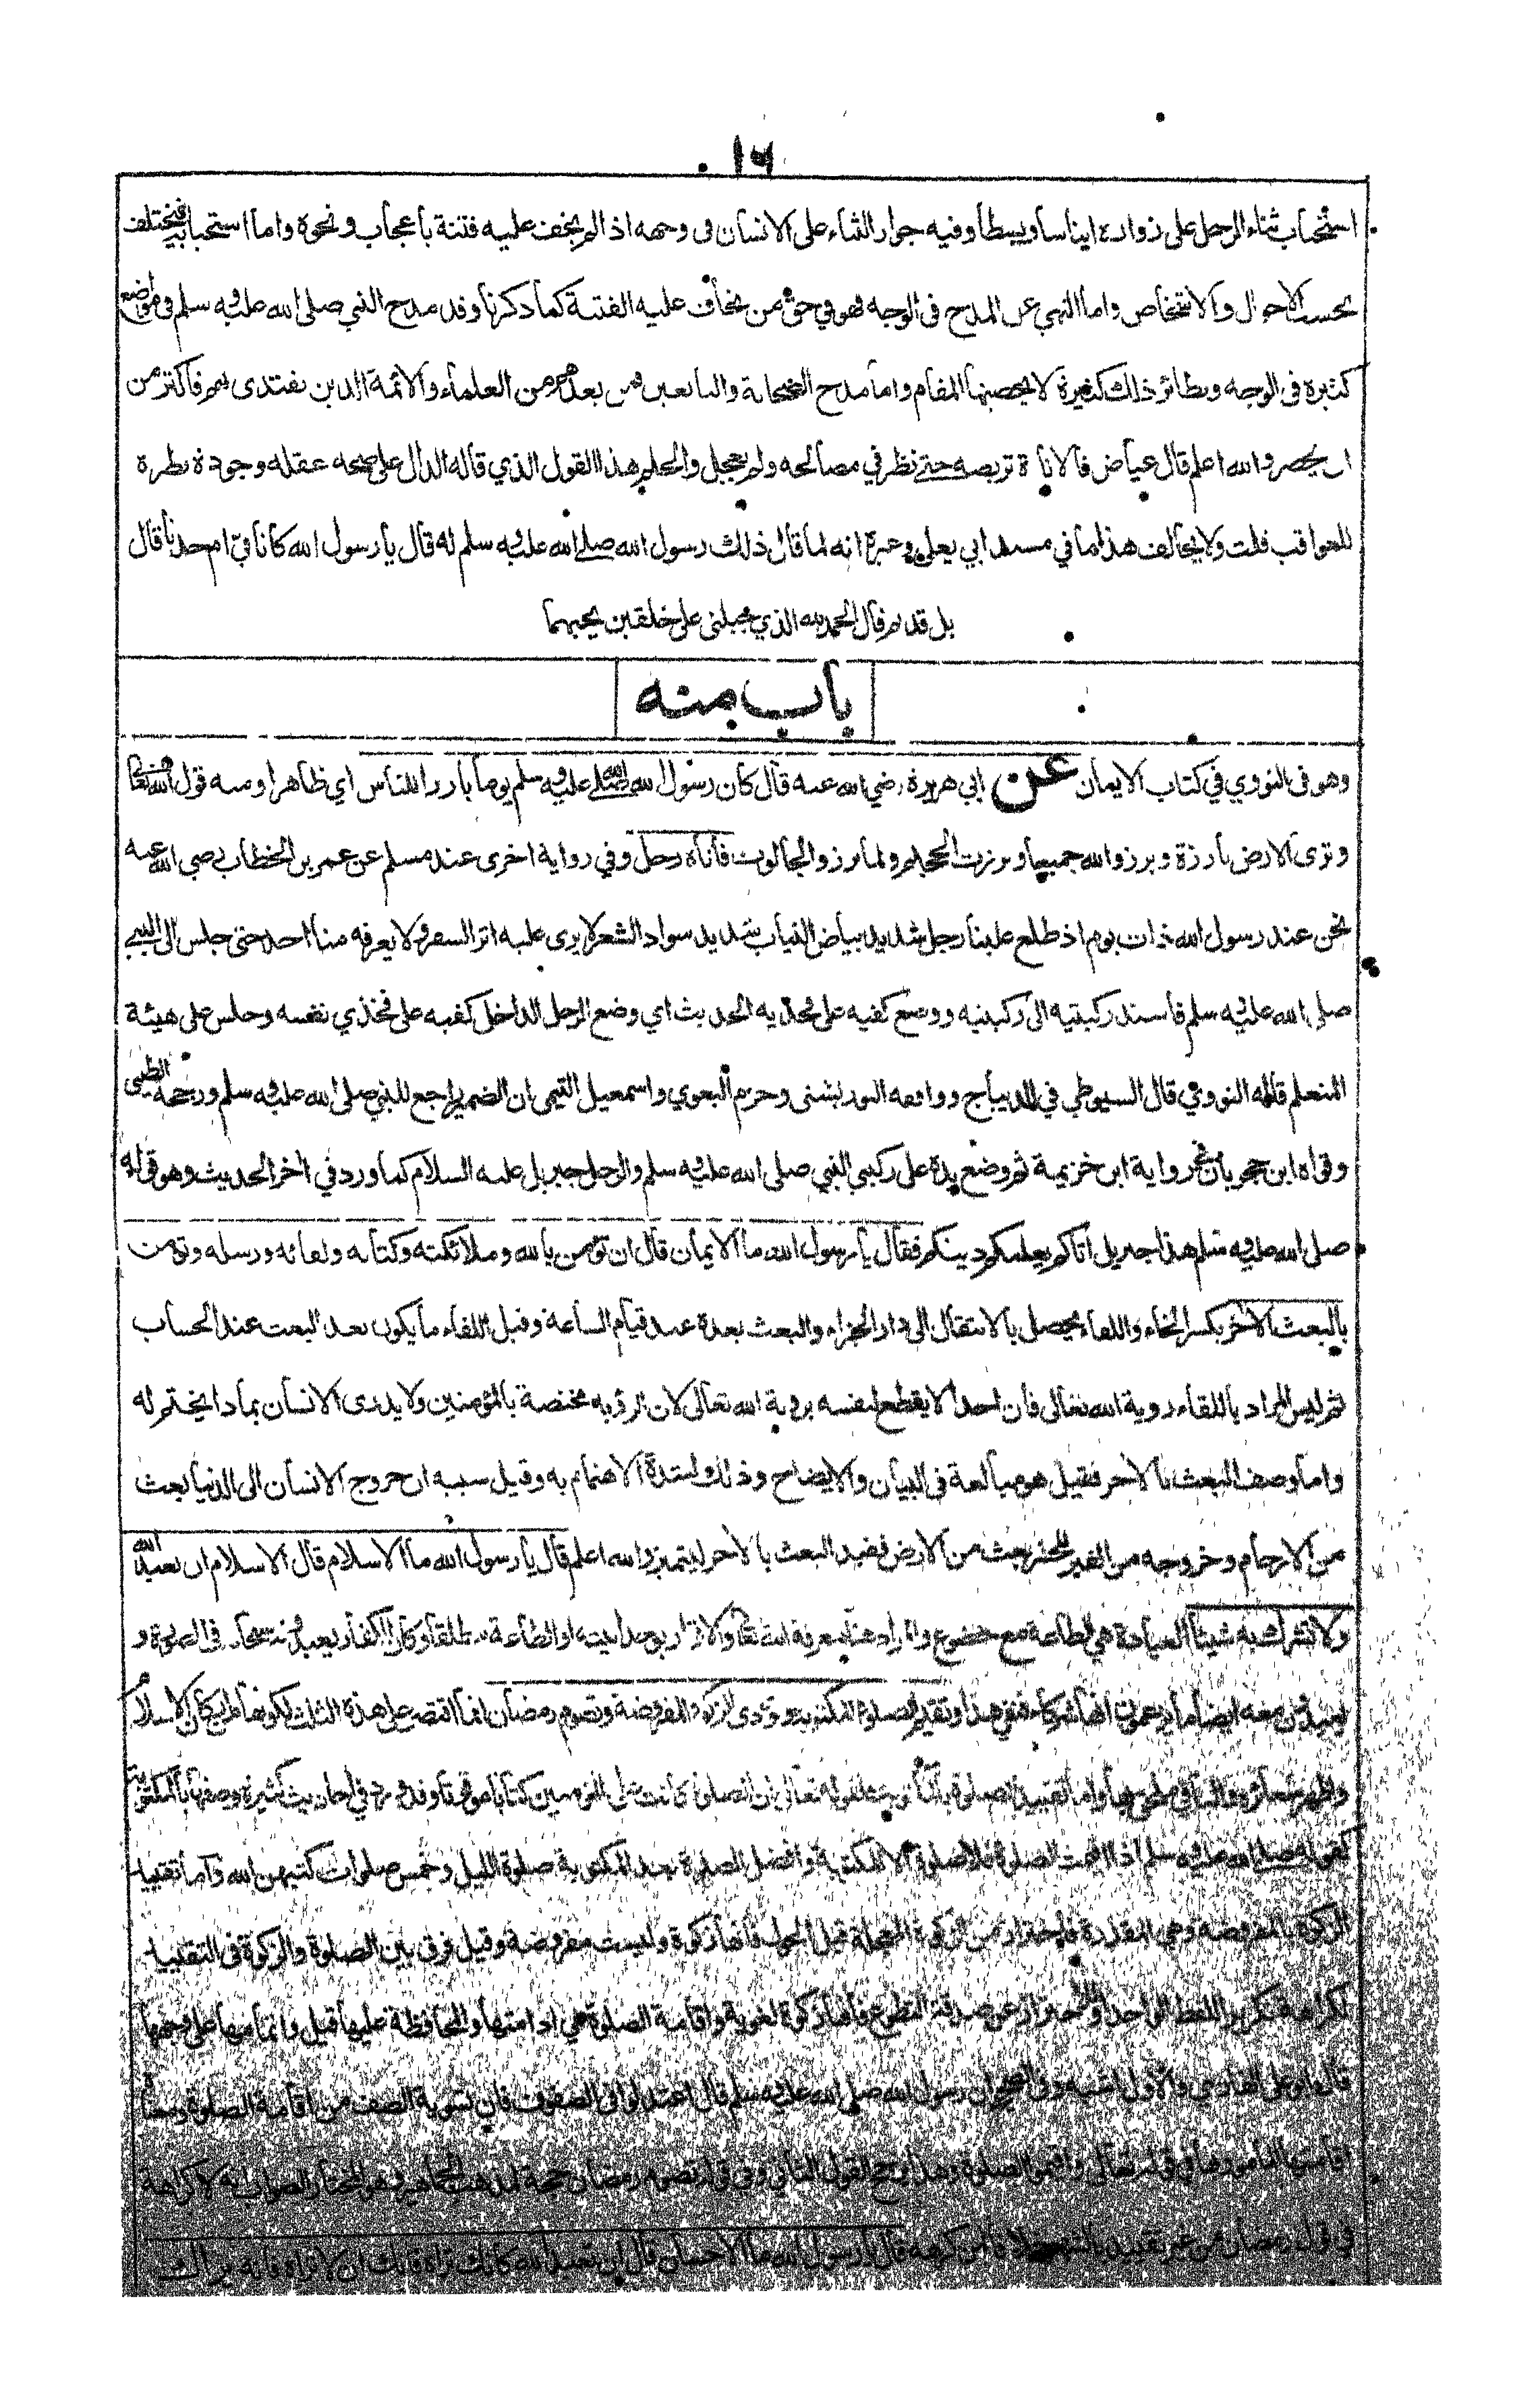 ١٦
استحباب ثناء الرجل على زواره ايناسا وبسطا وفيه جواز الثناء على الانسان في وجهه اذا لم يخف عليه فتنة باعجاب ونحوه واما استحبابه فيختلف
بحسب الاحوال والاشخاص واما النهي عن المدح في الوجه فهو في حق من يخاف عليه الفتنة كما ذكرنا وقد مدح النبي صلى الله عليه وسلم في مواضع
كثيرة في الوجه ونظائر ذلك كثيرة لا يحصيها المقام واما مدح الصحابة والتابعين فمن بعدهم من العلماء والائمة الذين يقتدى بهم فاكثر من
ان يحصر والله اعلم قال عياض فالاناة تربصه حتى نظر في مصالحه ولم يعجل والحلم هذا القول الذي قاله الدال على صحة عقله وجودة نظره
للعواقب قلت ولا يخالف هذا ما في مسند ابي يعلى وغيره انه لما قال ذلك رسول الله صلى الله عليه وسلم له قال يا رسول الله كانا في ام حدثا قال
بل قديم قال الحمد لله الذي جبلني على خلقين يحبهما
باب منه
وهو في النووي في كتاب الايمان عن ابي هريرة رضي الله عنه قال كان رسول الله صلى الله عليه وسلم يوما بارزا للناس اي ظاهرا ومنه قول الله تعالى
وترى الارض بارزة وبرزوا لله جميعا وبرزت الجحيم ولما برزوا لجالوت فأتاه رجل وفي رواية اخرى عند مسلم عن عمر بن الخطاب رضي الله عنه
نحن عند رسول الله ذات يوم اذ طلع علينا رجل شديد بياض الثياب شديد سواد الشعر لا يرى عليه اثر السفر ولا يعرفه منا احد حتى جلس الى النبي
صلى الله عليه وسلم فأسند ركبتيه الى ركبتيه ووضع كفيه على فخذيه الحديث اي وضع الرجل الداخل كفيه على فخذي نفسه وجلس على هيئة
المتعلم قاله النووي قال السيوطي في الديباج ووافقه التوربشتي وجزم البغوي واسمعيل التيمي ان الضمير راجع للنبي صلى الله عليه وسلم ورجحه الطيبي
وقواه ابن حجر بأن في رواية ابن خزيمة ثم وضع يده على ركبتي النبي صلى الله عليه وسلم والرجل جبريل عليه السلام كما ورد في اخر الحديث وهو قوله
صلى الله عليه وسلم هذا جبريل اتاكم يعلمكم دينكم فقال يا رسول الله ما الايمان قال ان تؤمن بالله وملائكته وكتابه ولقائه ورسله وتؤمن
بالبعث الآخر بكسر الخاء واللقاء يحصل بالانتقال الى دار الجزاء والبعث بعده عند قيام الساعة وقيل اللقاء ما يكون بعد البعث عند الحساب
ثم ليس المراد باللقاء روية الله تعالى فان احدا لا يقطع لنفسه بروية الله تعالى لان الرؤية مختصة بالمؤمنين ولا يدرى الانسان بماذا يختم له
واما وصف البعث بالآخر فقيل هو مبالغة في البيان والايضاح وذلك لشدة الاهتمام به وقيل سببه ان خروج الانسان الى الدنيا بعث
من الارحام وخروجه من القبر للحشر بعث من الارض فقيد البعث بالآخر ليتميز والله اعلم قال يا رسول الله ما الاسلام قال الاسلام ان تعبد الله
ولا تشرك به شيئا العبادة هي الطاعة مع خضوع والمراد هنا معرفة الله تعالى والاقرار بوحدانيته او الطاعة مطلقا وكان الكفار يعبدونه سبحانه في الصورة و
يعبدون معه ايضا ما يزعمون انها شركاء فنفي هذا وتقيم الصلوة المكتوبة وتؤدى الزكوة المفروضة وتصوم رمضان انما اقتصر على هذه الثلث لكونها اركان الاسلام
واظهر شعائره والباقي ملحق بها واما تقييد الصلوة بالمكتوبة فلقوله تعالى ان الصلوة كانت على المؤمنين كتابا موقوتا وقد ورد في احاديث كثيرة وصفها بالمكتوبة
كقوله صلى الله عليه وسلم اذا اقيمت الصلوة فلا صلوة الا المكتوبة وافضل الصلوة بعد المكتوبة صلوة الليل وخمس صلوات كتبهن الله واما تقييد
الزكوة بالمفروضة وهي المقدرة فاحتراز من الزكوة المعجلة قبل الحول فانها زكوة وليست مفروضة وقيل فرق بين الصلوة والزكوة في التقييد
لكراهة تكرير اللفظ الواحد او للاحتراز عن صدقة التطوع فانها زكوة لغوية واقامة الصلوة هي ادامتها والمحافظة عليها قيل واتمامها على وجهها
صلى الله عليه وسلم قال اعتدلوا في الصفوف فان تسوية الصف من اقامة الصلوة
قال يا رسول الله ما الاحسان قال ان تعبد الله كأنك تراه فانك ان لا تراه فانه يراك